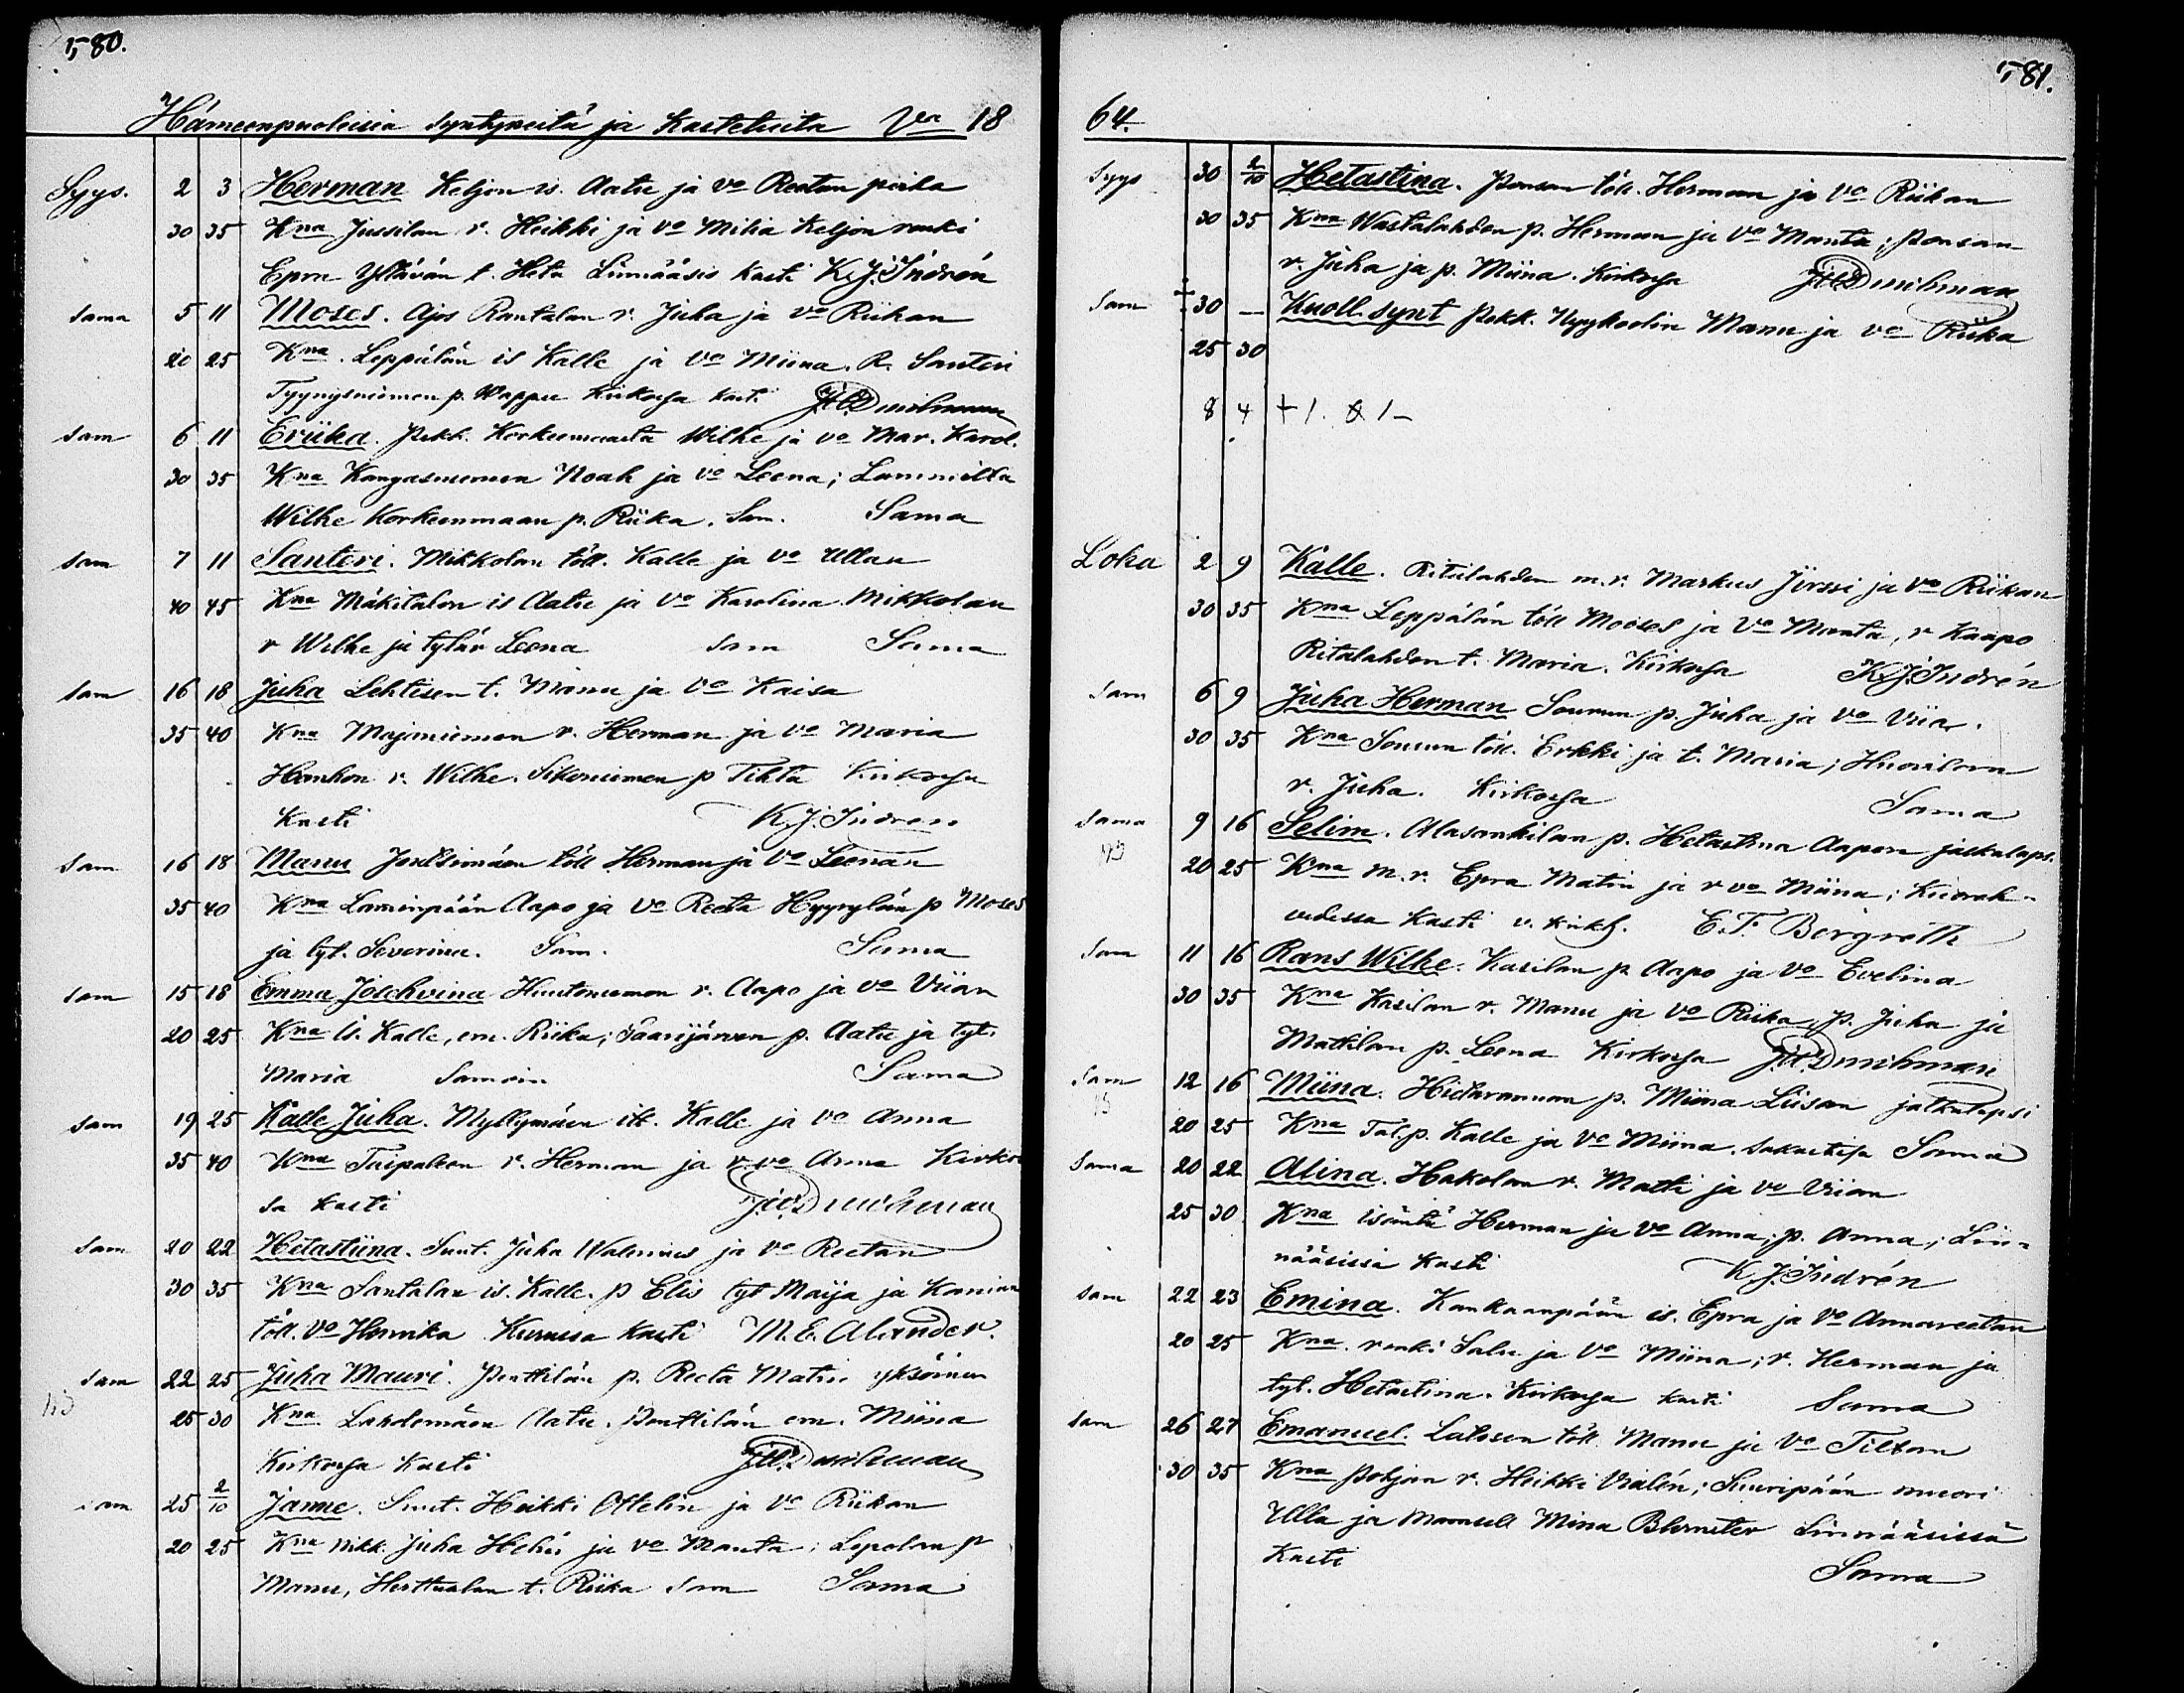 580.
Hämeenpuoleisia syntyneitä ja kastetuita Vna 18
Syys. 2 3 Herman Keljon is. Aatu ja vo Reetan poika
30 35 Kna Jussilan r. Heikki ja vo Milia Keljon renki
Epra Yllävän t. Heta Liinnääsis kasti K.J. Indrén
sama 5 11 Moses. Ajos Rantalan r. Juha ja vo Riikan
20 25 Kna. Leppälän is Kalle ja vo Miina. R. Santeri
Tyynysniemen p. Wappu Kirkossa kast.
sam 6 11 Eriika. Pekk. Korkeemaasta Wilhe ja vo Mar. Karol.
30 35 Kna Kangasniemen Noah ja vo Leena; Lamminlla
Wilhe Korkeenmaan p. Riika. Sam. Sama
sam 7 11 Santeri. Mikkolan töll. Kalle ja vo Ullan
40 45 Kna Mäkitalon is Aatu ja vo Karolina Mikkolan
r Wilhe ja tytär Leena sam Sama
sam 16 18 Juha Lehtisen t. Manu ja vo Kaisa
35 40 Kna Majaniemen r. Herman ja vo Maria
Hanhon r. Wilhe. Sikoniemen p Tilta Kirkossa
kasti K.J. Indrén
sam 16 18 Manu Joutsimäen töll Herman ja vo Leenan
35 40 Kna Lamminpään Aapo ja vo Reeta Hyyrylän p Moses
ja tyt. Severina. Sam. Sama
sam 15 18 Emma Josehvina Huutoniemen r. Aapo ja vo Viian
20 25 Kna is. Kalle, em. Riika; Saarijärven p. Aatu ja tyt.
Maria Samoin Sama
sam 19 25 Kalle Juha. Myllymäen itl. Kalle ja vo Anna
35 40 Kna Taipaleen r. Herman ja r vo Anna Kirkos
sa kasti
sam 20 22 Hetastiina. Sunt. Juha Walenius ja vo Reetan
30 35 Kna Santalan is. Kalle. p Elis tyt Maija ja
töll. vo Henrika Kurussa kasti M.E. Alander.
sam 22 25 Juha Mauri. Penttilän p. Reeta Matin yksöinen
25 30 Kna Lahdemäen Aatu. Penttilän em. Miina
Kirkossa kasti
sam 25 2/10 Janne. Sunt. Heikki Ottelin ja vo Riikan
20 25 Kna nikk. Juha Helin ja vo Manta; Lepolan p
Manu, Herttualan t. Riika sam Sama
581.
64.
Syys 30 2/10 Hetastina. Ponsan töll. Herman ja vo Riikan
30 35 Kna Wastalahden p. Herman ja vo Manta; Ponsan
r. Juha ja p. Miina. Kirkossa
sam 30 — Kuoll. synt Pekk. Nyykoolin Manu ja vo Riika
25 30
8 4 + 1. & 1–
Loka 2 9 Kalle. Ritalahden m.r. Markus Jörssi ja vo Riikan
30 35 Kna Leppälän töll Mooses ja vo Manta, r Kaapo
Ritalahden t. Maria. Kirkossa K.J. Indrén
sam 6 9 Juha Herman Sourun p. Juha ja vo Viia.
30 35 Kna Sourun töll. Erkki ja t. Maria; Huovilan
r. Juha. Kirkossa Sama
sama 9 16 Selim. Alasankilan p. Hetastina Aapon jalkalaps.
20 25 Kna m.r. Epra Matin ja r vo Miina; Kuoreh-
vedessa kasti v. kirkh. E.F. Bergroth
sam 11 16 Rans Wilhe. Kasilan p Aapo ja vo Evelina
30 35 Kna Kasilan r. Manu ja vo Riika, p. Juha ja
Mattilan p. Leena Kirkossa
sam 12 16 Miina. Hietarannan p. Miina Liisan jalkalapsi
20 25 Kna Tal.p. Kalle ja vo Miina. Sakastissa Sama
sama 20 22 Alina. Hakolan r. Matti ja vo Viian
25 30 Kna isäntä Herman ja vo Anna; p. Anna; Liin-
nääsissä kasti K.J. Indrén
sam 22 23 Emina. Kankaanpään is. Epra ja vo Annareetan
20 25 Kna. renki Salu ja vo Miina; r. Herman ja
tyt. Hetastina. Kirkossa kasti Sama
sam 26 27 Emanuel. Latosen töll. Manu ja vo Tiltan
30 35 Kna Pohjan r. Heikki Vialén; Suuripään muori
Ulla ja Mamsell Mina Blomster Liinnääsissä
kasti Sama